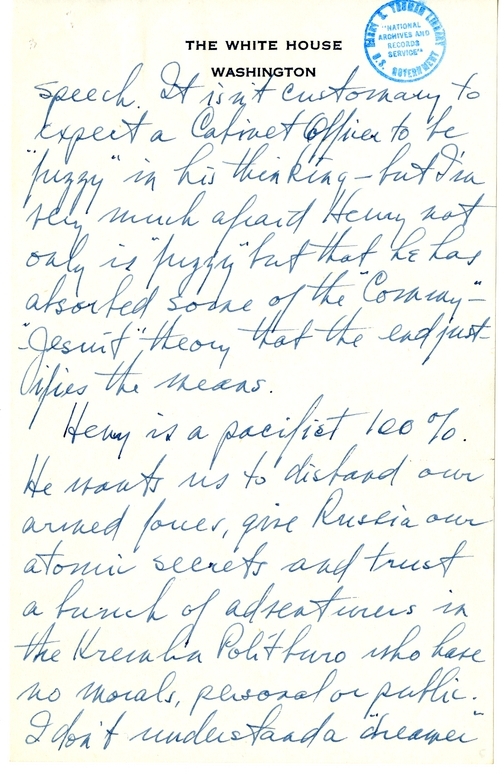 THE WHITE HOUSE
WASHINGTON
HARRY S. TRUMAN LIBRARY
"NATIONAL
ARCHIVES AND
RECORDS
SERVICE"
U.S. GOVERNMENT
speech. It isn't customary to
expect a Cabinet Officer to be
"fuzzy" in his thinking – but I'm
very much afraid Henry not
only is "fuzzy" but that he has
absorbed some of the "Commy"-
-"Jesuit" theory that the end just-
ifies the means.
Henry is a pacifist 100%.
He wants us to disband our
armed forces, give Russia our
atomic secrets and trust
a bunch of adventurers in
the Kremlin Politburo who have
no morals, personal or public.
I don't understand a "dreamer"